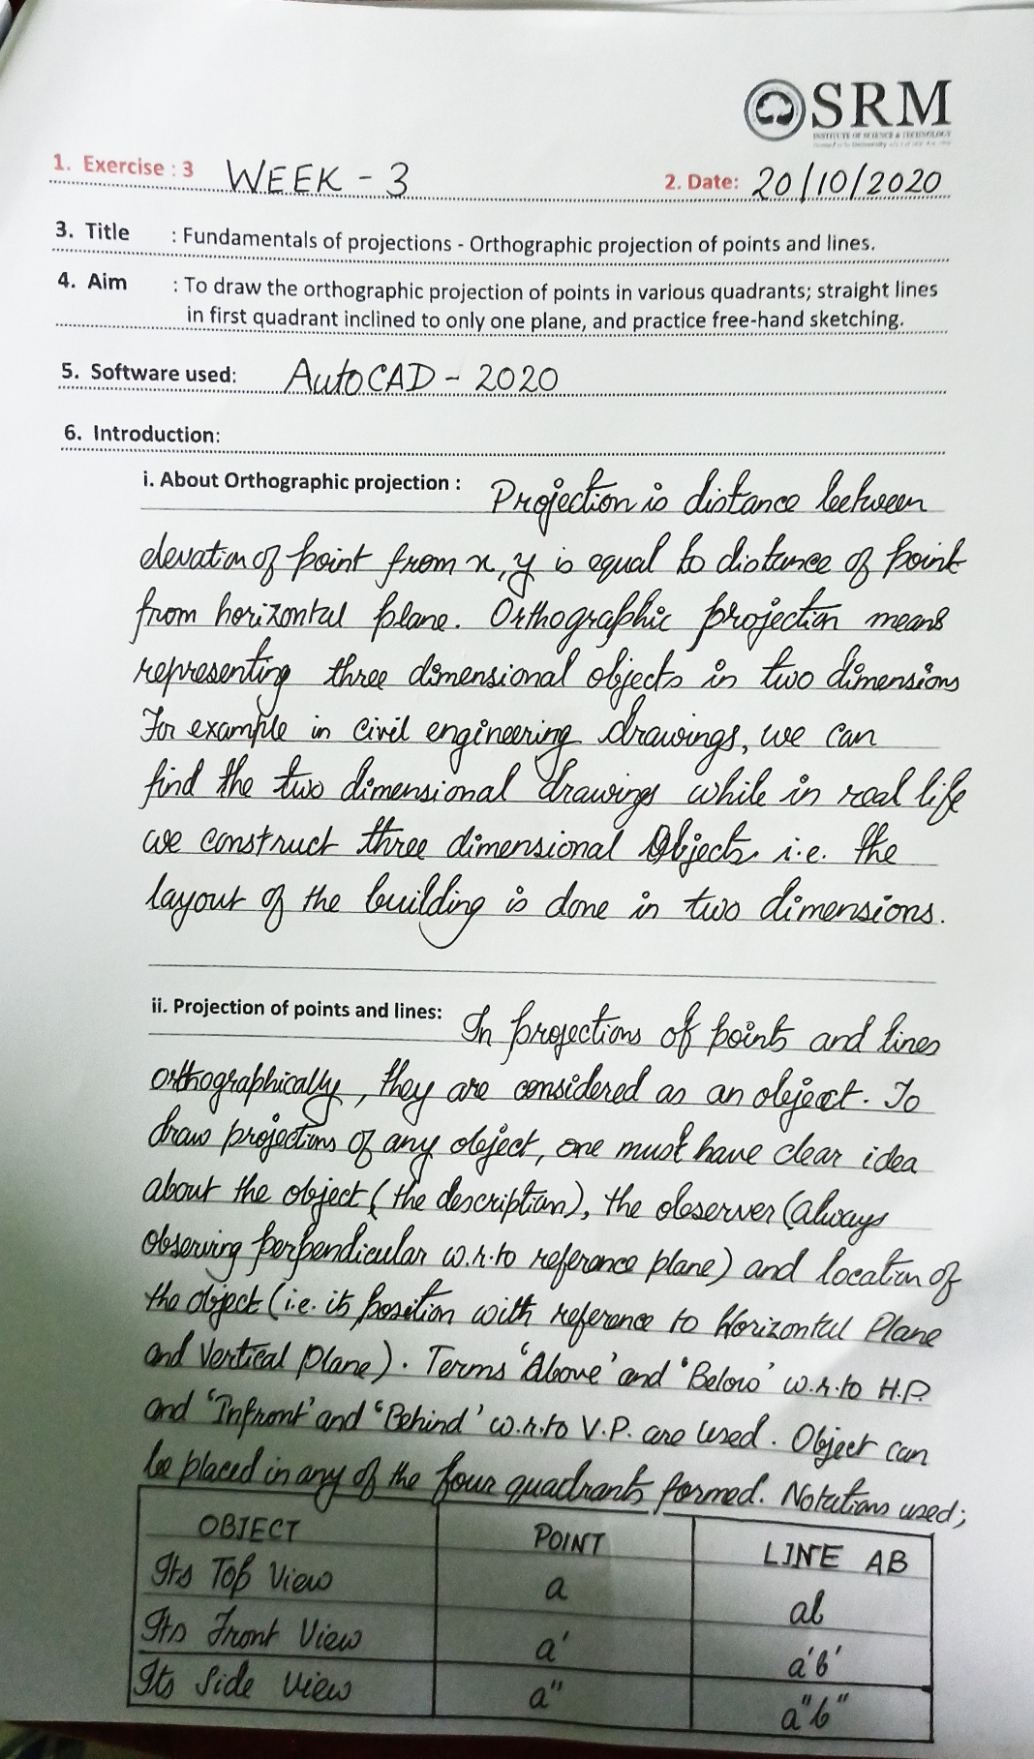 SRM
INSTITUTE OF SCIENCE & TECHNOLOGY
1. Exercise : 3 WEEK - 3
2. Date: 20/10/2020
3. Title : Fundamentals of projections - Orthographic projection of points and lines.
4. Aim : To draw the orthographic projection of points in various quadrants; straight lines
in first quadrant inclined to only one plane, and practice free-hand sketching.
5. Software used: AutoCAD - 2020
6. Introduction:
i. About Orthographic projection : Projection is distance between
elevation of point from x, y is equal to distance of point
from horizontal plane. Orthographic projection means
representing three dimensional objects in two dimensions
For example in Civil engineering drawings, we can
find the two dimensional drawings while in real life
we construct three dimensional Objects i.e. the
layout of the building is done in two dimensions.
ii. Projection of points and lines: In projections of points and lines
orthographically, they are considered as an object. To
draw projections of any object, one must have clear idea
about the object (the description), the observer (always
observing perpendicular w.r.to reference plane) and location of
the object (i.e. its position with reference to Horizontal Plane
and Vertical Plane). Terms 'Above' and 'Below' w.r.to H.P.
and 'Infront' and 'Behind' w.r.to V.P. are used. Object can
be placed in any of the four quadrants formed. Notations used;
OBJECT POINT LINE AB
Its Top View a ab
Its Front View a' a'b'
Its Side View a" a"b"